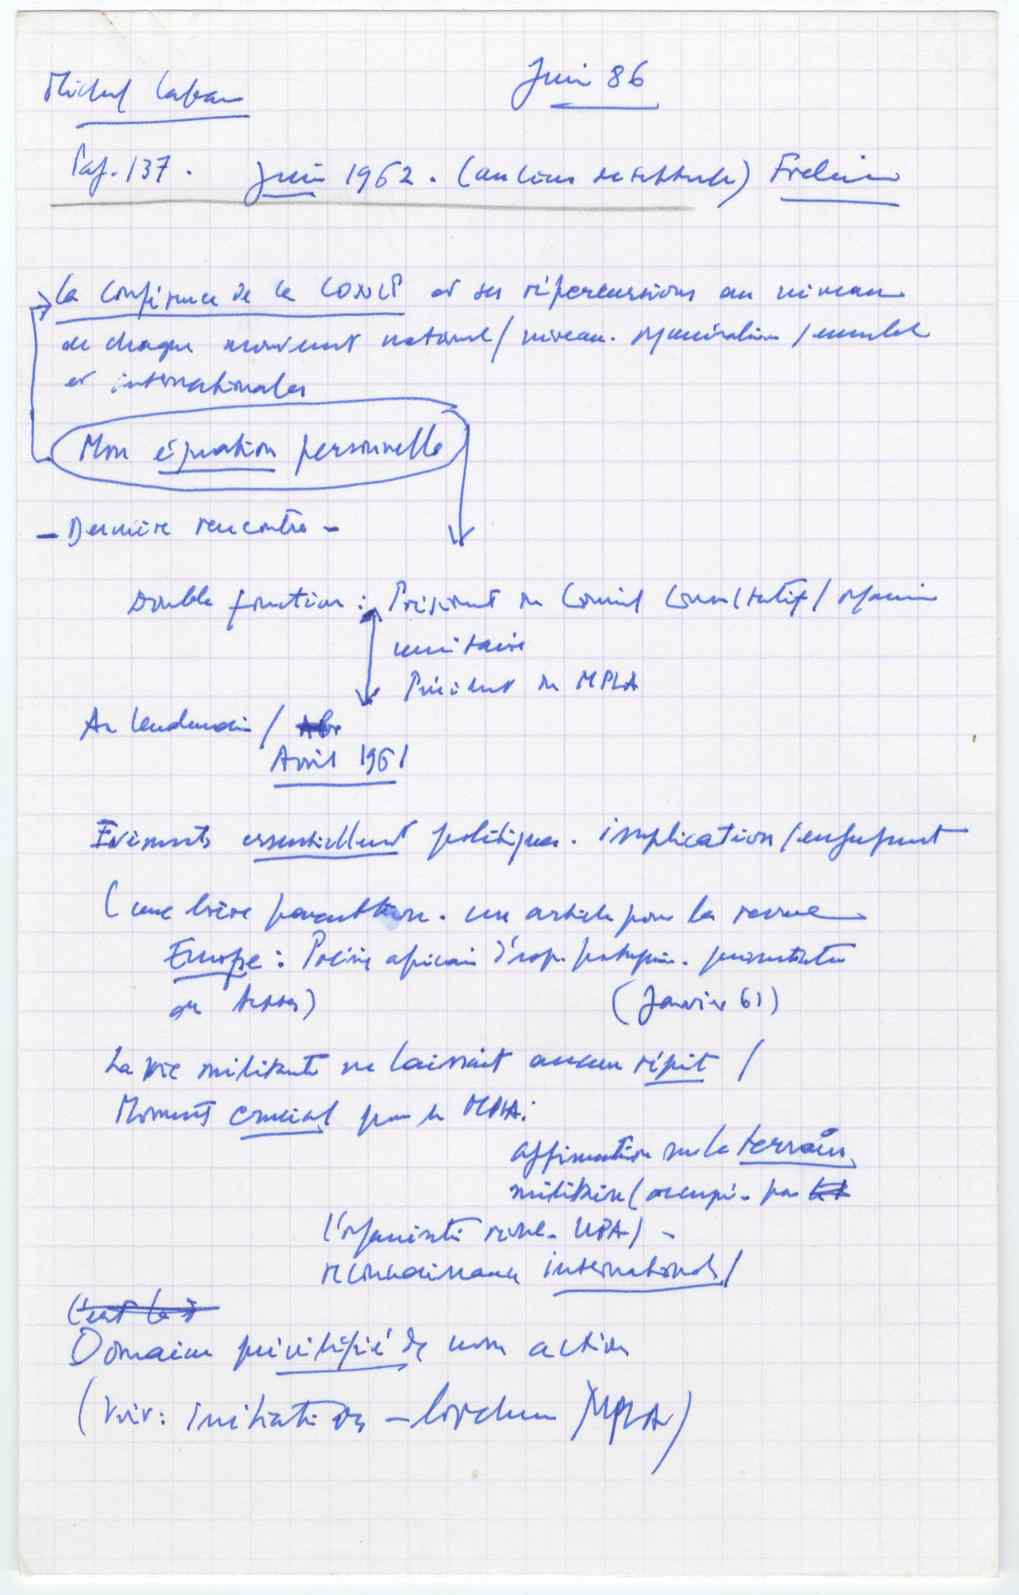 Michel Laban
Juin 86
Pag. 137. Juin 1962. (au lieu de septembre) Frelimo
La Conférence de la CONCP et ses répercussions au niveau
de chaque mouvement national / niveau. organisation / ensemble
et internationales
Mon équation personnelle
- Dernière rencontre -
Double fonction : Président du Conseil Consultatif / organisation
unitaire
Président du MPLA
Au lendemain /
Avril 1961
Evénements essentiellement politiques. implication / engagement
(une brève parenthèse. un article pour la revue
Europe : Poésie africaine d'exp. portugaise. présentation
de textes) (Janvier 61)
La vie militante ne laissait aucun répit /
Moment crucial pour le MPLA :
affirmation sur le terrain
militaire (occupé par
l'organisation rivale UPA) -
reconnaissance internationale /
C'est le
Domaine privilégié de mon action
(Voir : initiatives - London / MPLA)